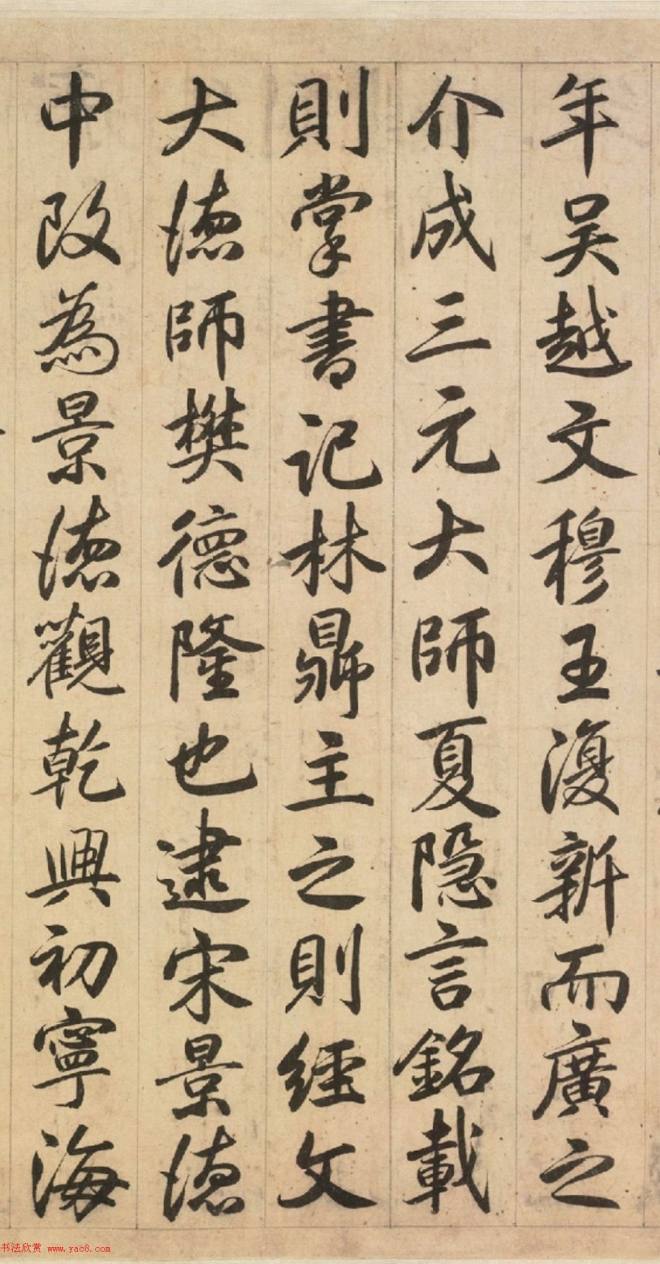 年吴越文穆王復新而廣之
介成三元大師夏隐言銘載
則掌書記林鼎主之則經文
大徳師樊德隆也逮宋景徳
中改為景徳觀乾興初寧海
书法欣赏 www.yac8.com